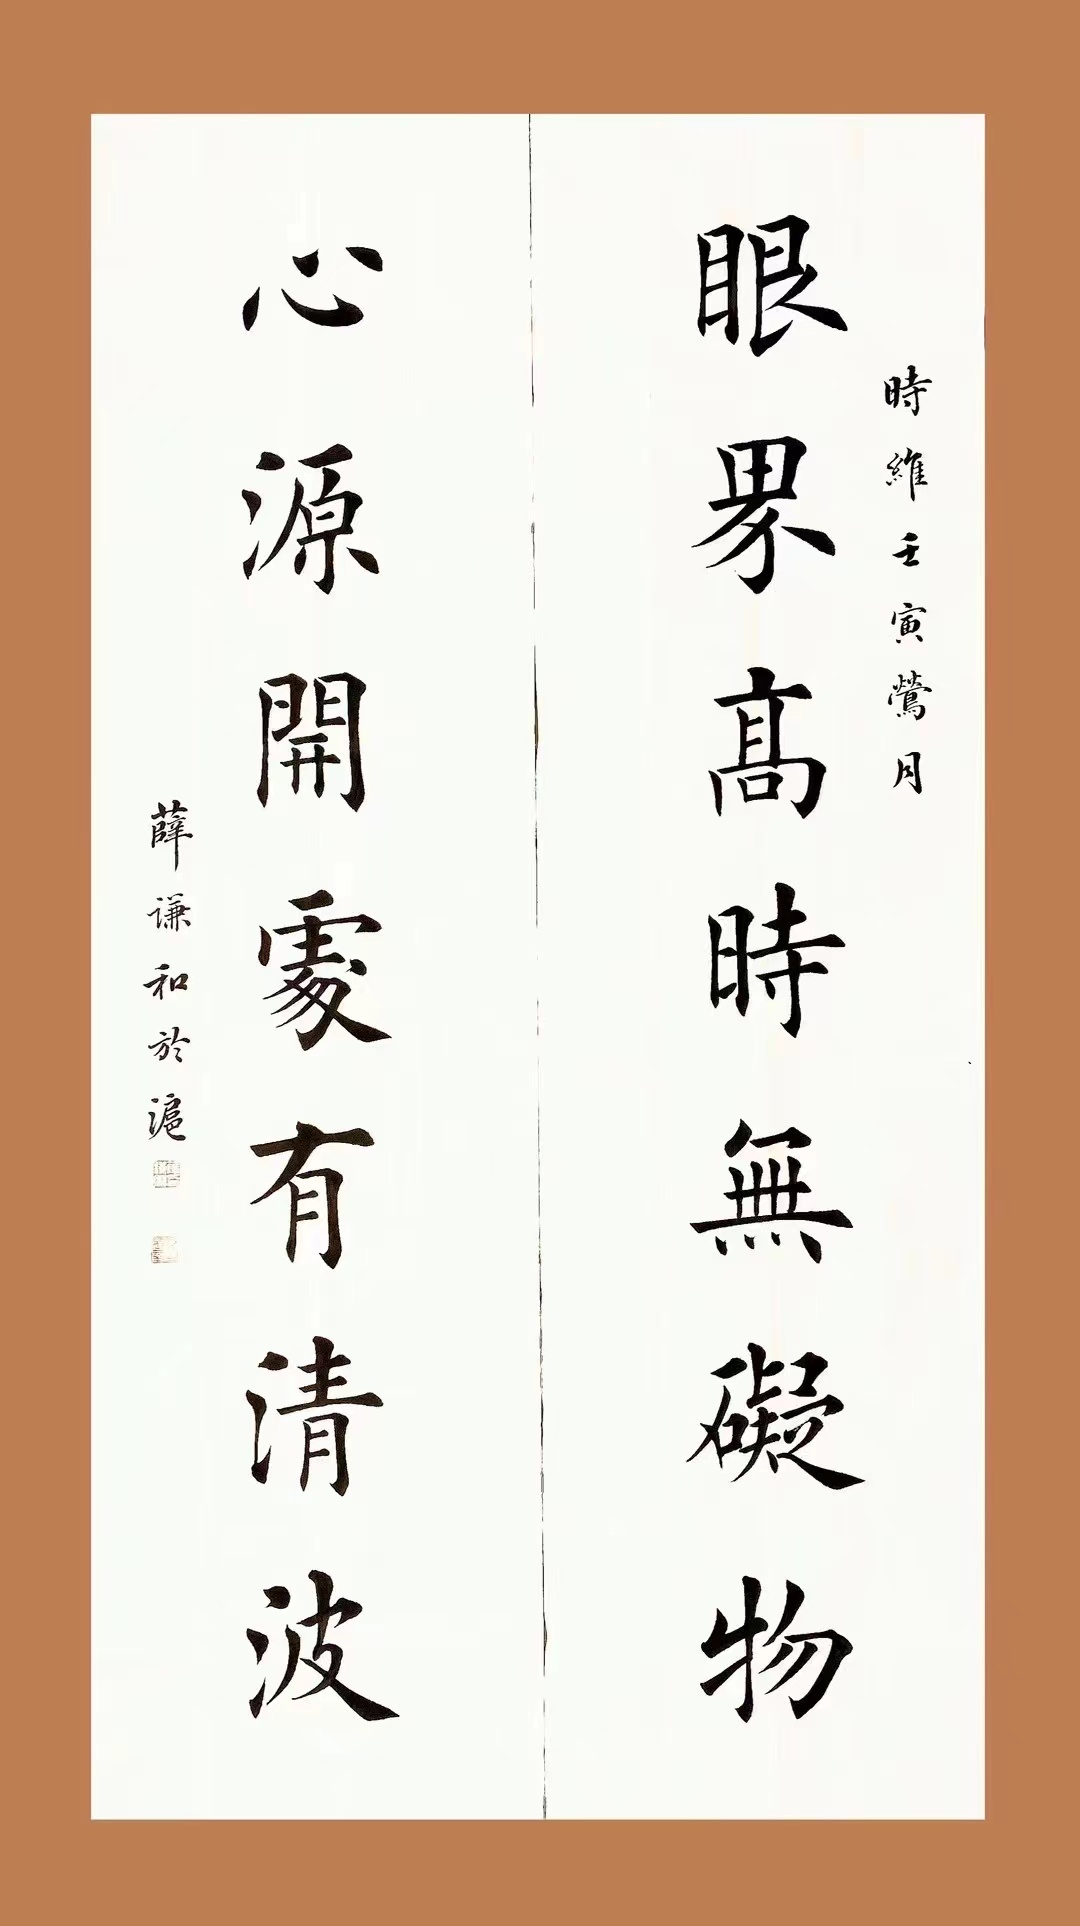 時維壬寅鶯月
眼界高時無礙物
心源開處有清波
薛谦和於滬